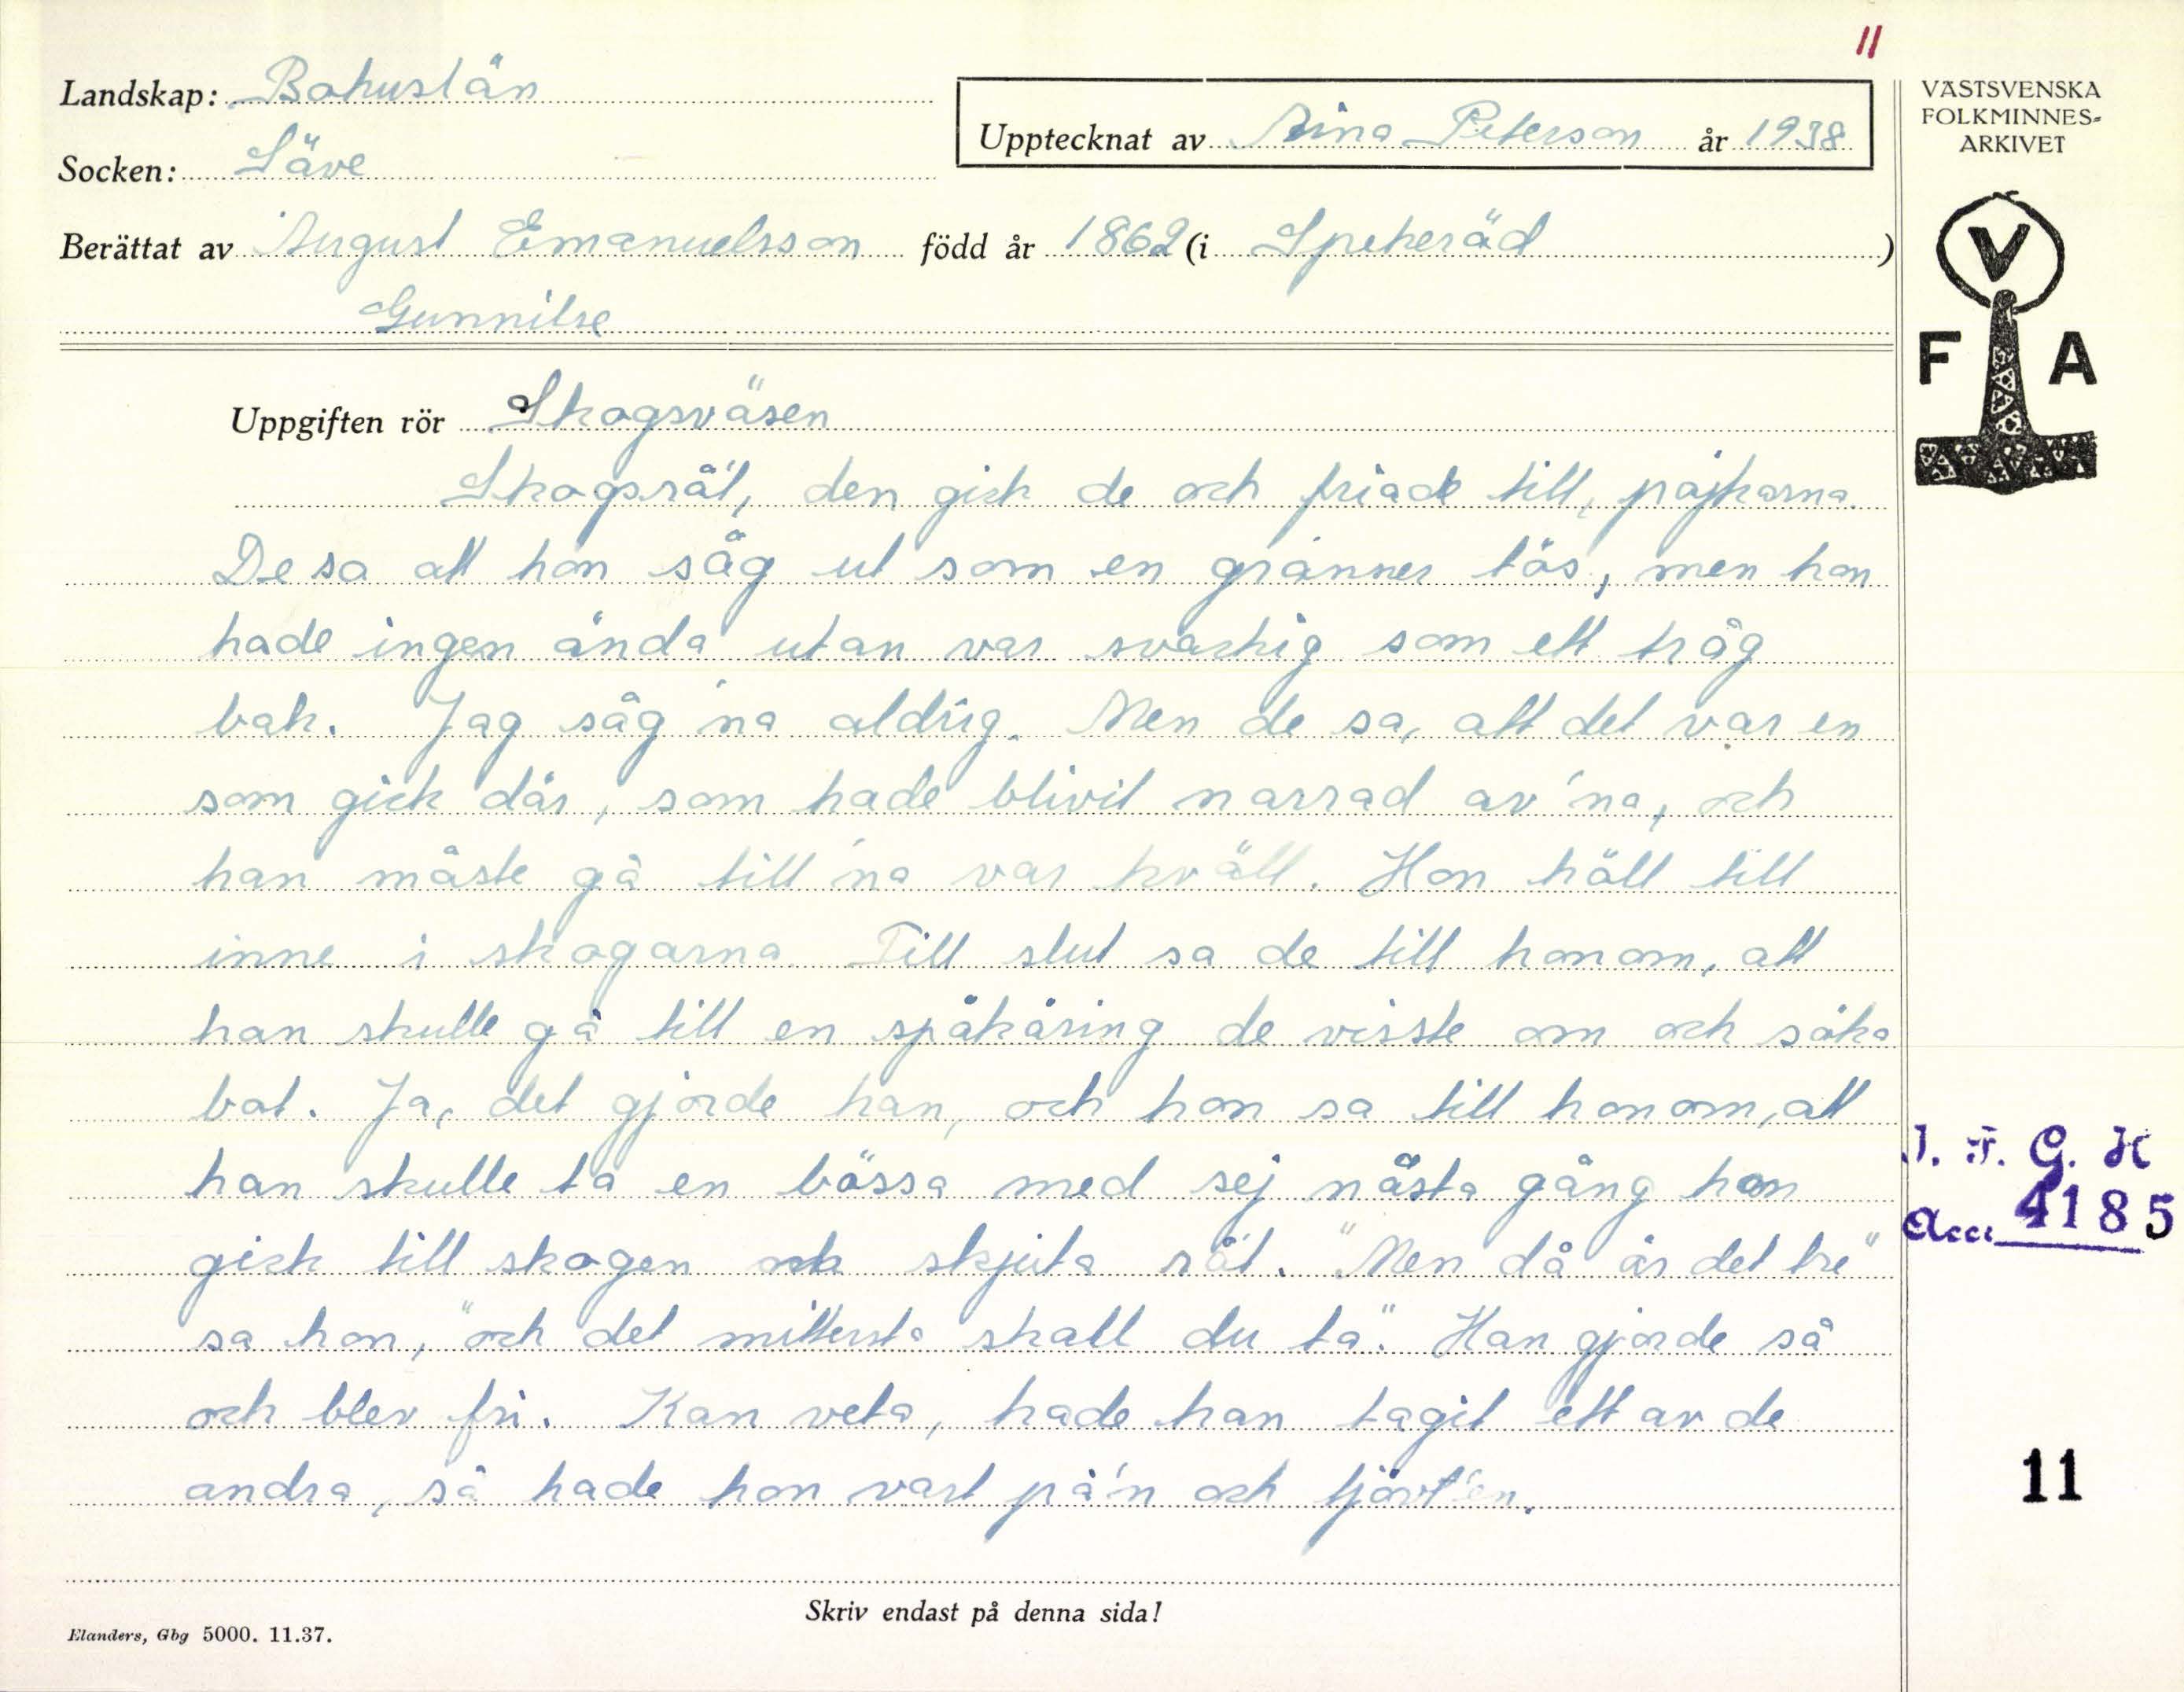 11
Landskap: Bohuslän
Upptecknat av Aina Peterson år 1938
VÄSTSVENSKA
FOLKMINNES-
ARKIVET
Socken: Säve
Berättat av August Emanuelsson född år 1862 (i Spekeröd )
Gunnilse
V
F A
Uppgiften rör Skogsväsen
Skogsråt, den gick de och friade till, pojkarna.
De sa att hon såg ut som en granner tös, men hon
hade ingen ända utan var svackig som ett tråg
bak. Jag såg 'na aldrig. Men de sa, att det var en
som gick där, som hade blivit narrad av 'na, och
han måste gå till 'na var kväll. Hon höll till
inne i skogarna. Till slut sa de till honom, att
han skulle gå till en spåkäring de visste om och söka
bot. Ja, det gjorde han, och hon sa till honom, att
han skulle ta en bössa med sej nästa gång han
gick till skogen och skjuta råt. "Men då är det tre"
sa hon, "och det mittersta skall du ta". Han gjorde så
och blev fri. Kan veta, hade han tagit ett av de
andra, så hade hon vart på'n och
I. F. G. H
Acc. 4185
11
Skriv endast på denna sida!
Elanders, Gbg 5000. 11.37.